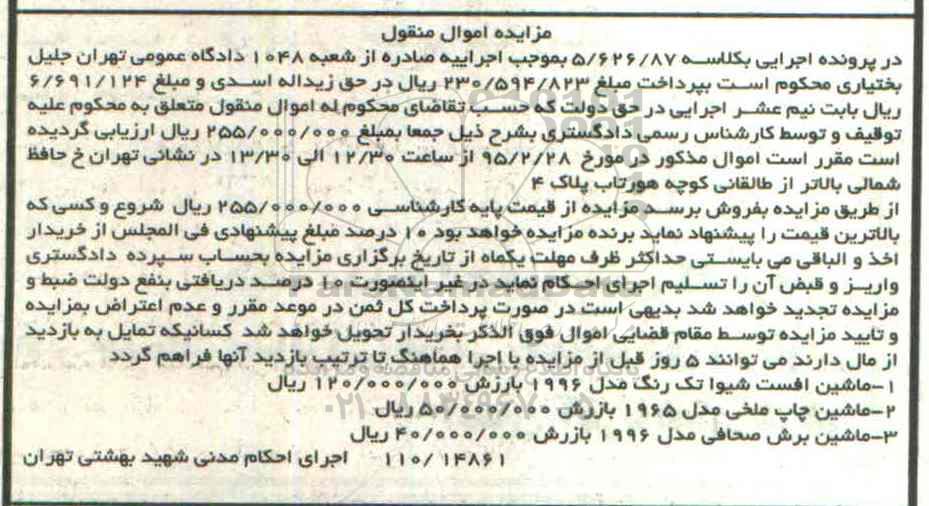 مزایده اموال منقول
در پرونده اجرایی بکلاسه ۵/۶۲۶/۸۷ بموجب اجراییه صادره از شعبه ۱۰۴۸ دادگاه عمومی تهران جلیل
بختیاری محکوم است بپرداخت مبلغ ۲۳۰/۵۹۴/۸۲۳ ریال در حق زیداله اسدی و مبلغ ۶/۶۹۱/۱۲۴
ریال بابت نیم عشر اجرایی در حق دولت که حسب تقاضای محکوم له اموال منقول متعلق به محکوم علیه
توقیف و توسط کارشناس رسمی دادگستری بشرح ذیل جمعا بمبلغ ۲۵۵/۰۰۰/۰۰۰ ریال ارزیابی گردیده
است مقرر است اموال مذکور در مورخ ۹۵/۲/۲۸ از ساعت ۱۲/۳۰ الی ۱۳/۳۰ در نشانی تهران خ حافظ
شمالی بالاتر از طالقانی کوچه هورتاب پلاک ۴
از طریق مزایده بفروش برسد مزایده از قیمت پایه کارشناسی ۲۵۵/۰۰۰/۰۰۰ ریال شروع و کسی که
بالاترین قیمت را پیشنهاد نماید برنده مزایده خواهد بود ۱۰ درصد مبلغ پیشنهادی فی المجلس از خریدار
اخذ و الباقی می بایستی حداکثر ظرف مهلت یکماه از تاریخ برگزاری مزایده بحساب سپرده دادگستری
واریز و قبض آن را تسلیم اجرای احکام نماید در غیر اینصورت ۱۰ درصد دریافتی بنفع دولت ضبط و
مزایده تجدید خواهد شد بدیهی است در صورت پرداخت کل ثمن در موعد مقرر و عدم اعتراض بمزایده
و تایید مزایده توسط مقام قضایی اموال فوق الذکر بخریدار تحویل خواهد شد کسانیکه تمایل به بازدید
از مال دارند می توانند ۵ روز قبل از مزایده با اجرا هماهنگ تا ترتیب بازدید آنها فراهم گردد
۱-ماشین افست شیوا تک رنگ مدل ۱۹۹۶ بارزش ۱۲۰/۰۰۰/۰۰۰ ریال
۲-ماشین چاپ ملخی مدل ۱۹۶۵ بارزش ۵۰/۰۰۰/۰۰۰ ریال
۳-ماشین برش صحافی مدل ۱۹۹۶ بارزش ۴۰/۰۰۰/۰۰۰ ریال
۱۱۰/۱۴۸۶۱ اجرای احکام مدنی شهید بهشتی تهران